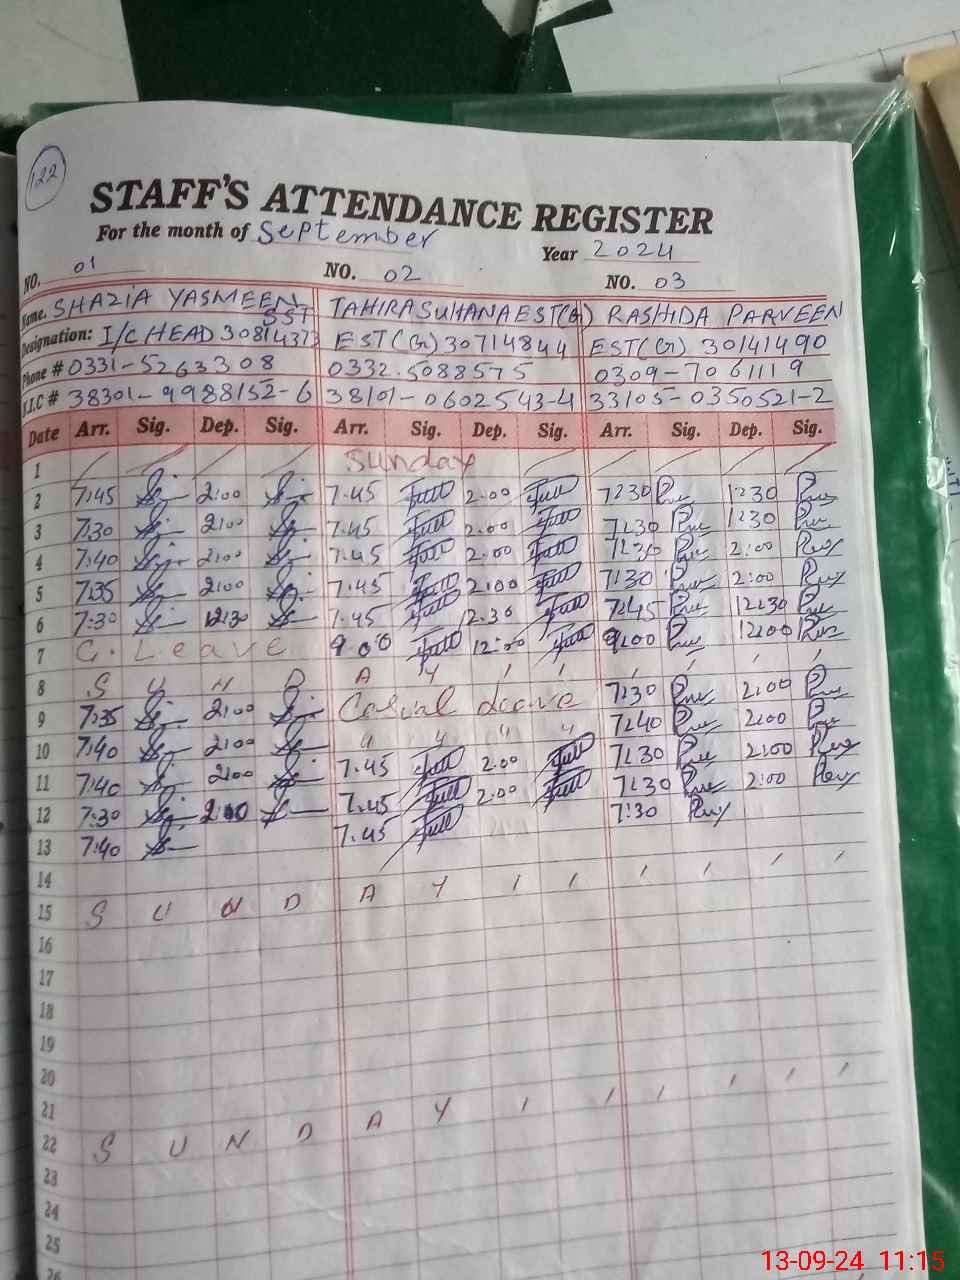 122
STAFF'S ATTENDANCE REGISTER
For the month of September
Year 2024
NO. 01 NO. 02 NO. 03
Name. SHAZIA YASMEEN TAHIRA SUHANA EST(G) RASHIDA PARVEEN
SST
Designation: I/C HEAD 30814373 EST(G) 30714844 EST(G) 30141490
Phone # 0331-5263308 0332.5088575 0309-7061119
N.I.C # 38301-9988152-6 38101-0602543-4 33105-0350521-2
Date Arr. Sig. Dep. Sig. Arr. Sig. Dep. Sig. Arr. Sig. Dep. Sig.
1 Sunday
2 7:45 2:00 7.45 2.00 7:30 12:30
3 7:30 2:00 7.45 2.00 7:30 12:30
4 7:40 2:00 7.45 2.00 7:30 2:00
5 7:35 2:00 7.45 2:00 7:30 2:00
6 7:30 12:30 7.45 12.30 7:45 12:30
7 C. Leave 9.00 12:00 9:00 12:00
8 S U N D A Y
9 7:35 2:00 Casual Leave 7:30 2:00
10 7:40 2:00 " " " " 7:40 2:00
11 7:40 2:00 7.45 2.00 7:30 2:00
12 7:30 2:00 7.45 2:00 7:30 2:00
13 7:40 7.45 7:30
14
15 S U N D A Y
16
17
18
19
20
21
22 S U N D A Y
23
24
25
26
13-09-24 11:15